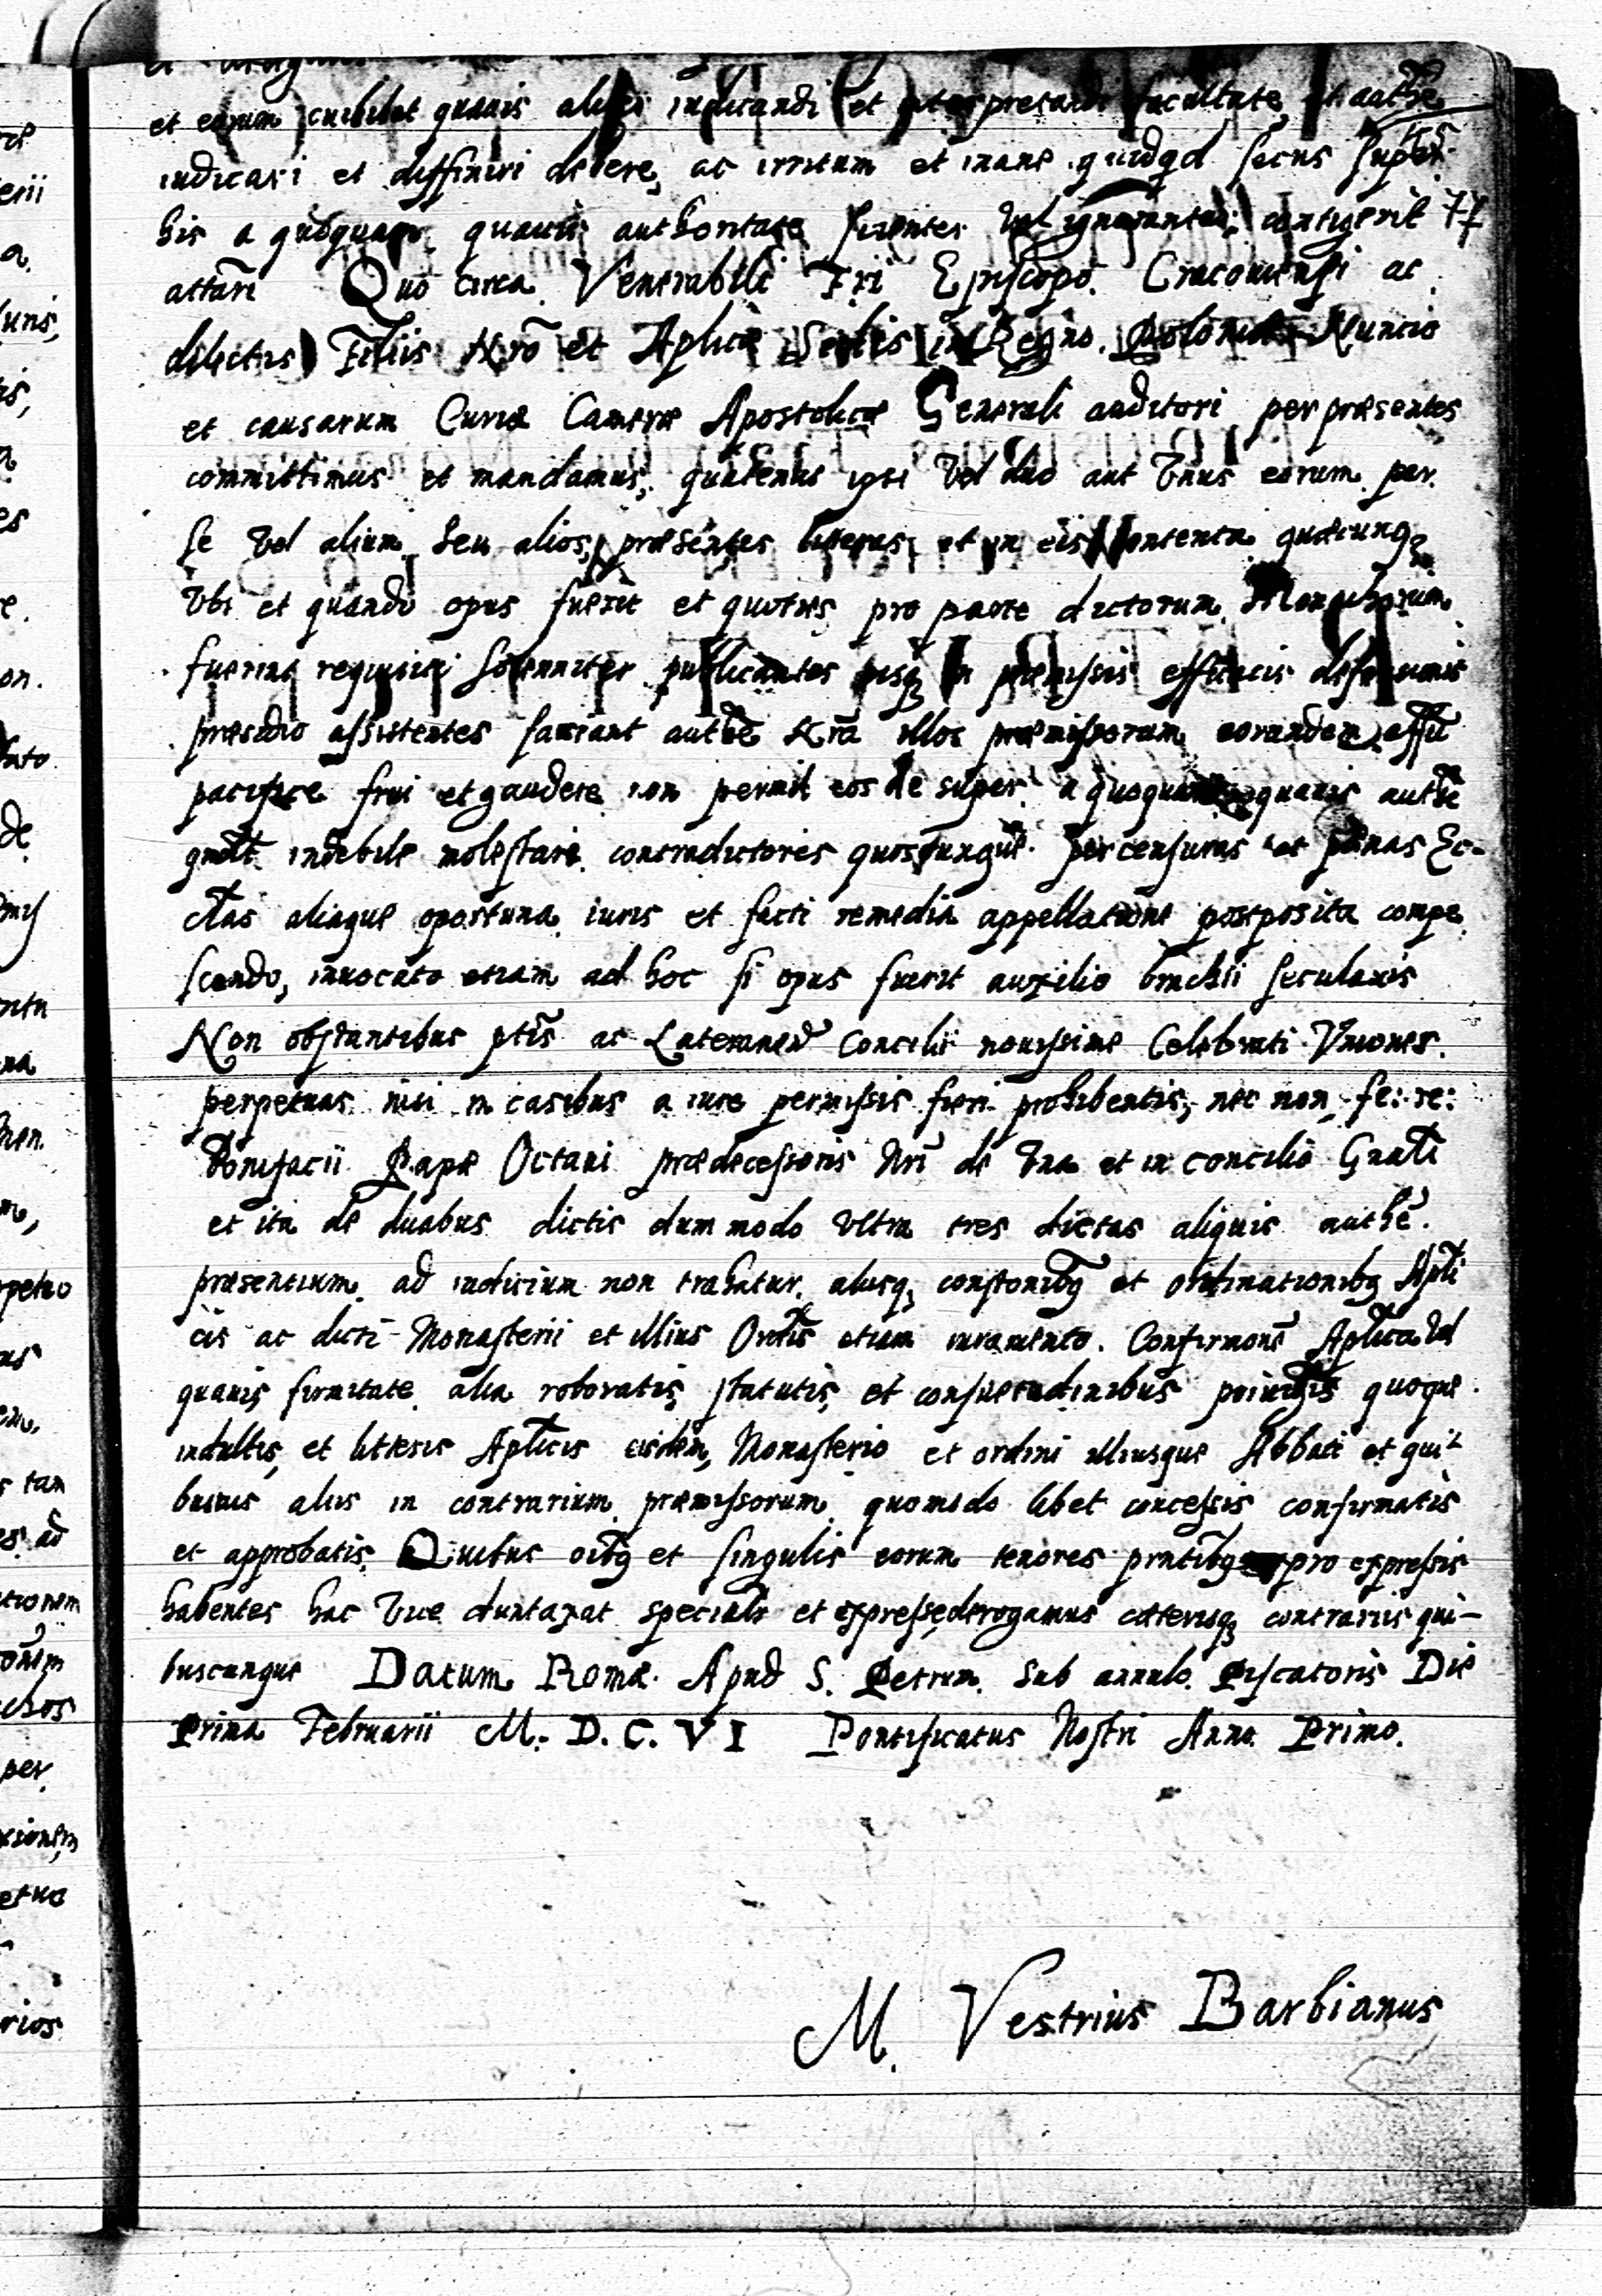 et eorum cuilibet quauis aliter iudicandi et interpretandi facultate et authte
iudicari et diffiniri debere, ac irritum et inane quidqd secus super
his a quoquam quauis authoritate scienter vel ignoranter contigerit 77
attari Quo circa Venerabili Fri Episcopo Cracouiensi ac
dilectis Filiis Nro et Aplicæ Sedis in Regno Poloniæ Nuncio
et causarum Curiæ Cameræ Apostolicæ Generali auditori per præsentes
committimus et mandamus, quatenus ipsi vel duo aut vnus eorum per
se vel alium seu alios, præsentes litteras et in eis contenta quæcunq;
Vbi et quando opus fuerit et quoties pro parte dictorum Monachorum
fuerint requisiti solenniter publicantes eisq; in præmissis efficacis defensionis
præsidio assistentes faciant authe nra illos præmissorum eorundem effu
pacifice frui et gaudere non permit eos de super a quoquam quauis authe
gmolt indebite molestari contradictores quoscunque per censuras et pœnas Ec-
ctas aliaque oportuna iuris et facti remedia appellatione postposita compe
scendo, inuocato etiam ad hoc si opus fuerit auxilio brachii secularis
Non obstantibus pttis ac Lateranen Concilii nouissime Celebrati Vniones
perpetuas nisi in casibus a iure permissis fieri prohibentis, nec non fe: re:
Bonifacii Papæ Octaui prædecessoris Nri de vna et in concilio Gnali
et ita de duabus dictis dum modo vltra tres dictas aliquis authe.
præsentium ad iudicium non trahatur aliisq; constonibq et ordinationibq Apli
cis ac dicti Monasterii et illius Ordis etiam iuramento Confirmone Aplica vel
quauis firmitate alia roboratis, statutis, et consuetudinibus priuigiis quoque
indultis, et litteris Aplicis eisdem, Monasterio et ordini illiusque Abbati et qui
busuis aliis in contrarium præmissorum quomodo libet concessis confirmatis
et approbatis, Quibus oibq et singulis eorum tenores pntibq pro expressis
habentes hac vice duntaxat specialr et expresse derogamus cæterisq; contrariis qui-
buscunque Datum Romæ Apud S. Petrum sub annulo Piscatoris Die
Prima Februarii M. D. C. VI Pontificatus Nostri Anno Primo.
M. Vestrius Barbianus